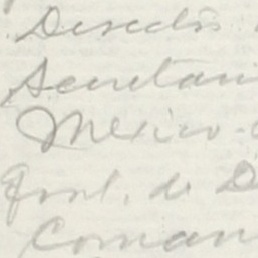 Director
Secretari
Mexico-
Gral. de D
Coman